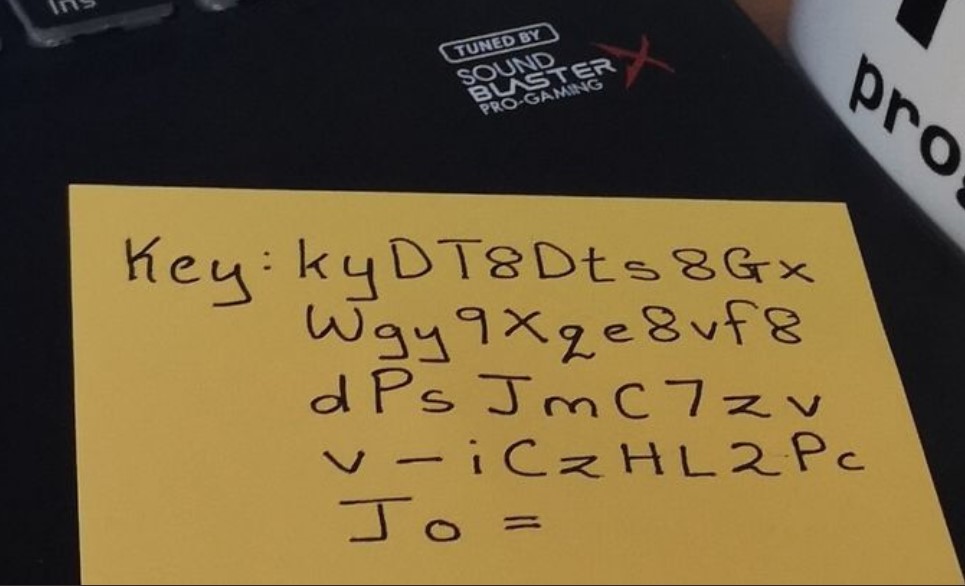 Ins
TUNED BY
SOUND
BLASTER X
PRO-GAMING
Key: kyDT8Dts8Gx
Wgy9Xqe8vf8
dPsJmC7zv
v-iCzHL2Pc
Jo=